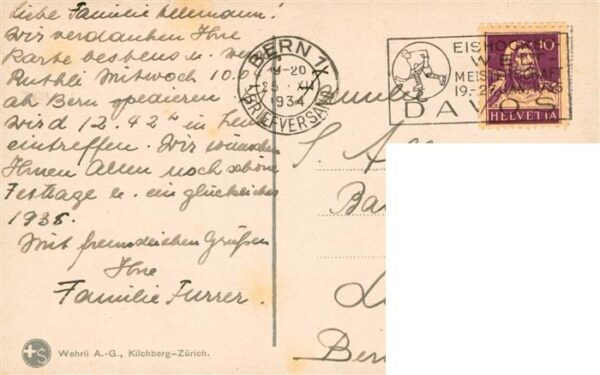 Liebe Familie Allemann!
Wir verdanken Ihre
Karte bestens u. werden
Ruthli Mittwoch 10.0
ab Bern spedieren
wird 12.42 in
eintreffen. Wir wünschen
Ihnen Allen noch schöne
Festtage u. ein glückliches
1935.
Mit freundlichen Grüßen
Ihre
Familie Furrer.
BERN 1
-20
25. XII
1934
(BRIEFVERSAND)
EISHOCKEY
WELT
MEISTERSCHAFT
19.-27. JAN. 1935
DAVOS
10
HELVETIA
Familie
S. A
Ba
L
Bern
+S
Wehrli A.-G., Kilchberg-Zürich.